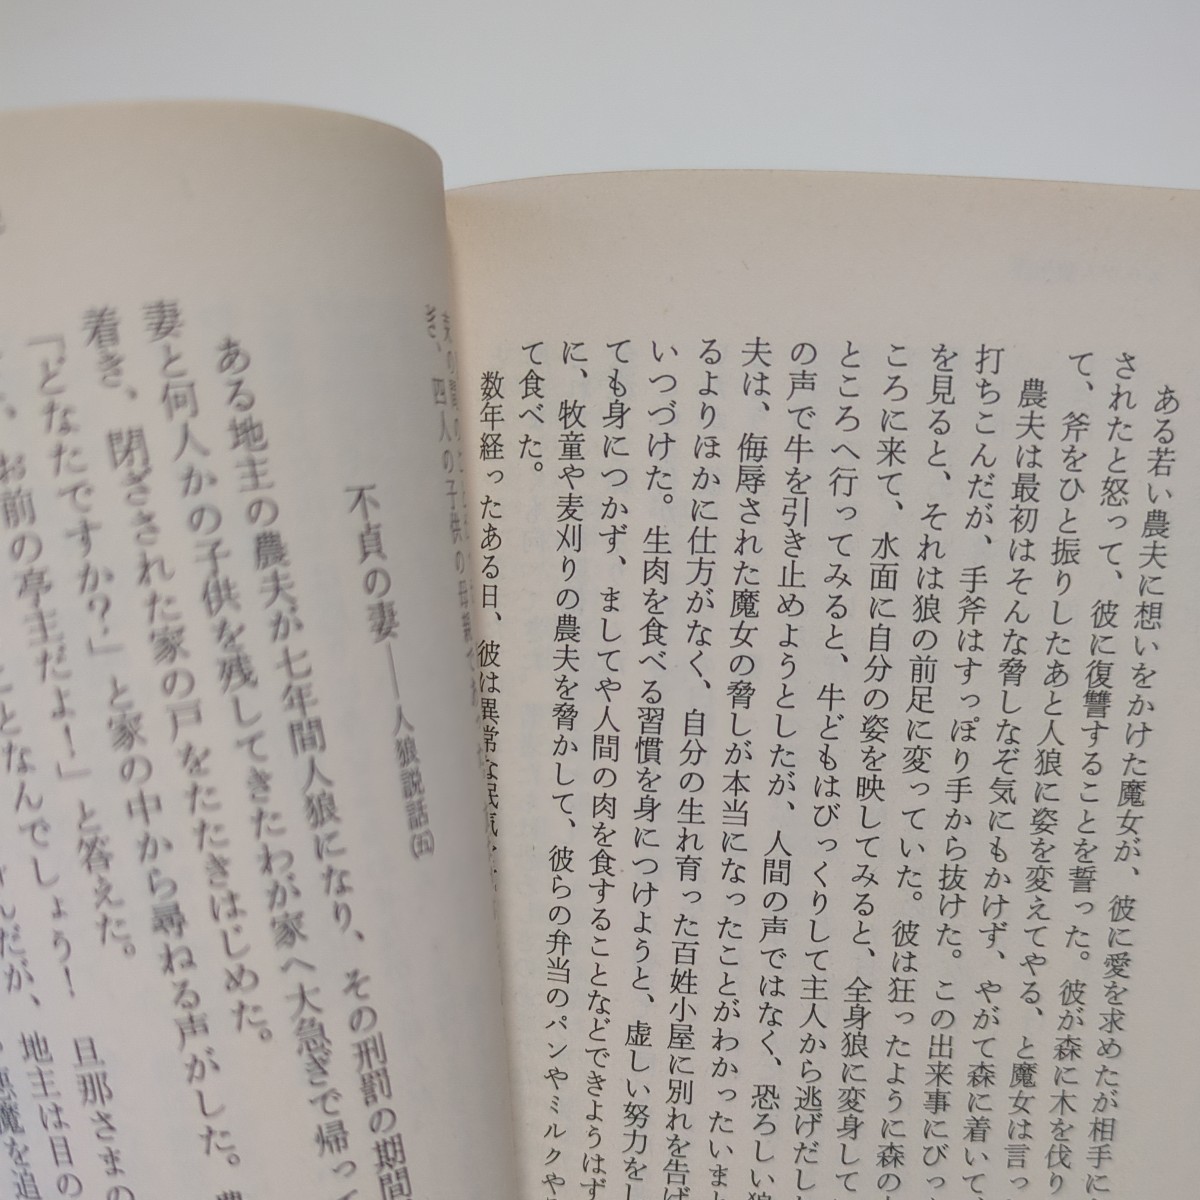 ある若い農夫に想いをかけた魔女が、彼に愛を求めたが相手に
されたと怒って、彼に復讐することを誓った。彼が森に木を伐り
て、斧をひと振りしたあと人狼に姿を変えてやる、と魔女は言っ
農夫は最初はそんな脅しなぞ気にもかけず、やがて森に着いて、
打ちこんだが、手斧はすっぽり手から抜けた。この出来事にびっ
を見ると、それは狼の前足に変っていた。彼は狂ったように森の
ころに来て、水面に自分の姿を映してみると、全身狼に変身して
ところへ行ってみると、牛どもはびっくりして主人から逃げだし
の声で牛を引き止めようとしたが、人間の声ではなく、恐ろしい狼
夫は、侮辱された魔女の脅しが本当になったことがわかったいま
るよりほかに仕方がなく、自分の生れ育った百姓小屋に別れを告げ
いつづけた。生肉を食べる習慣を身につけようと、虚しい努力をし
ても身につかず、ましてや人間の肉を食することなどできようはず
に、牧童や麦刈りの農夫を脅かして、彼らの弁当のパンやミルクや
て食べた。
数年経ったある日、彼は異常な眠気
四人の子供の母親
不貞の妻――人狼説話(五)
ある地主の農夫が七年間人狼になり、その刑罰の期間
妻と何人かの子供を残してきたわが家へ大急ぎで帰っ
着き、閉ざされた家の戸をたたきはじめた。
「どなたですか？」と家の中から尋ねる声がした。
お前の亭主だよ！」と答えた。
となんでしょう！　旦那さまの
だが、地主は目の
悪魔を追